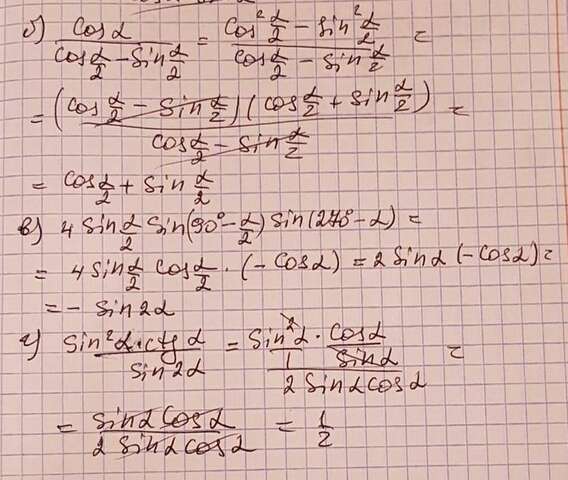 б) cosα / (cos α/2 − sin α/2) = (cos² α/2 − sin² α/2) / (cos α/2 − sin α/2) =
= (cos α/2 − sin α/2)(cos α/2 + sin α/2) / (cos α/2 − sin α/2) =
= cos α/2 + sin α/2
в) 4 sin α/2 sin(90° − α/2) sin(270° − α) =
= 4 sin α/2 cos α/2 · (−cosα) = 2 sinα (−cosα) =
= − sin2α
г) sin²α · ctg α / sin2α = (sin²α / 1 · cosα / sinα) / (2 sinα cosα) =
= sinα cosα / (2 sinα cosα) = 1/2